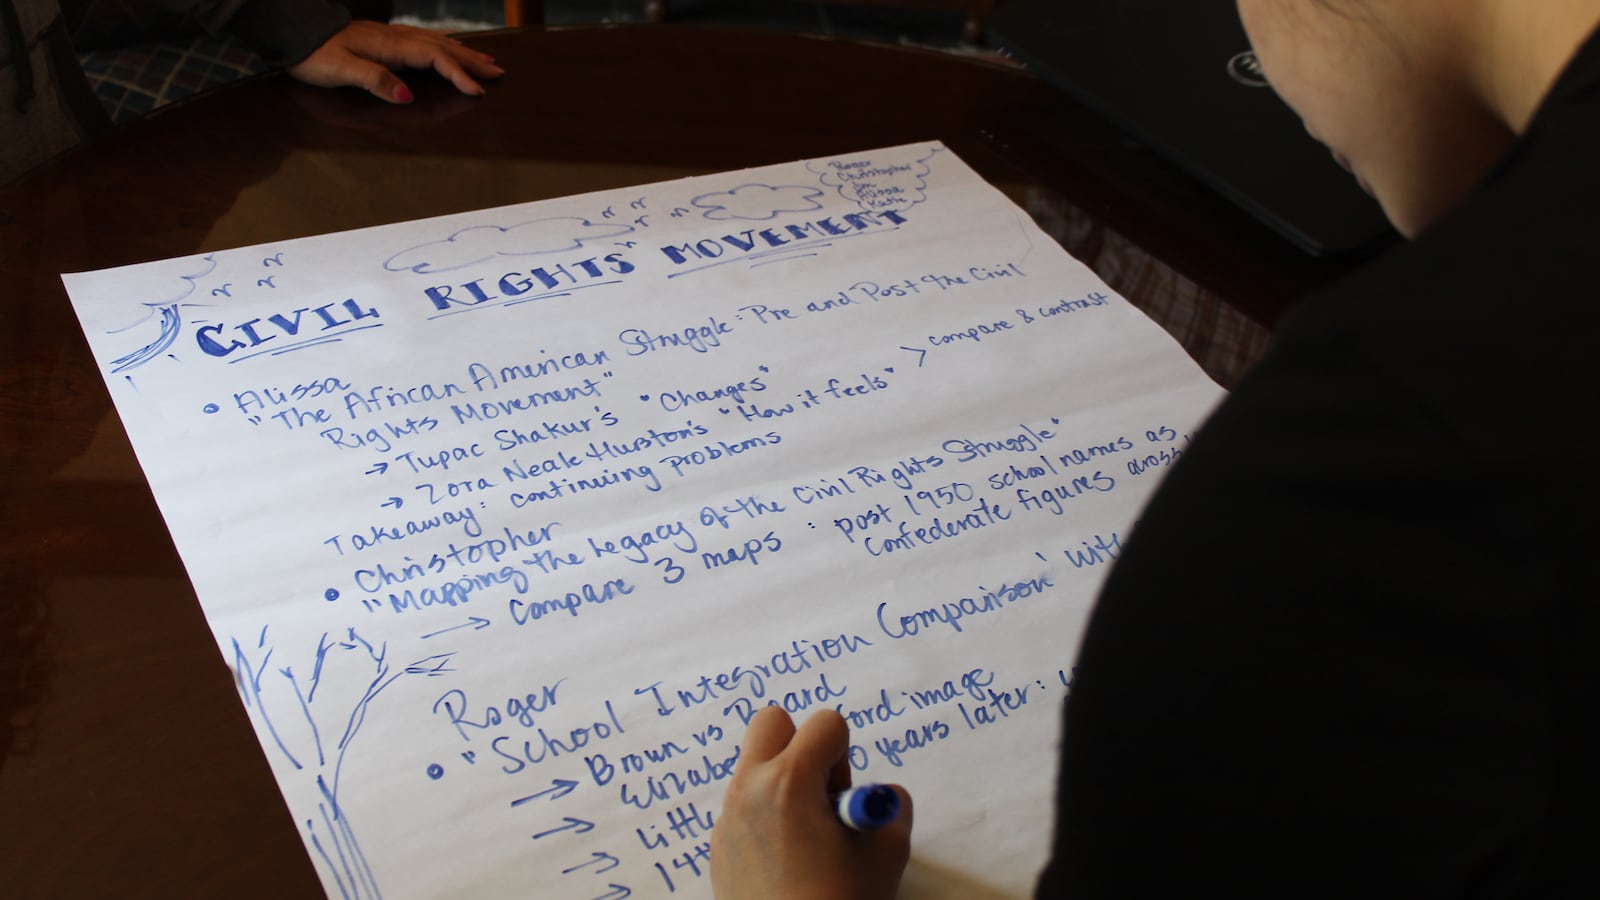 Roger
Christopher
Jon
Alissa
Katie
CIVIL RIGHTS MOVEMENT
• Alissa
"The African American Struggle: Pre and Post the Civil
Rights Movement"
→ Tupac Shakur's "Changes"
→ Zora Neale Hurston's "How it feels" > compare & contrast
Takeaway: continuing problems
• Christopher
"Mapping the Legacy of the Civil Rights Struggle"
→ Compare 3 maps : post 1950 school names as
Confederate figures across
Roger
• "School Integration Comparison" with
→ Brown vs Board
→ Elizabe ford image
→ Little 0 years later:
→ 14th